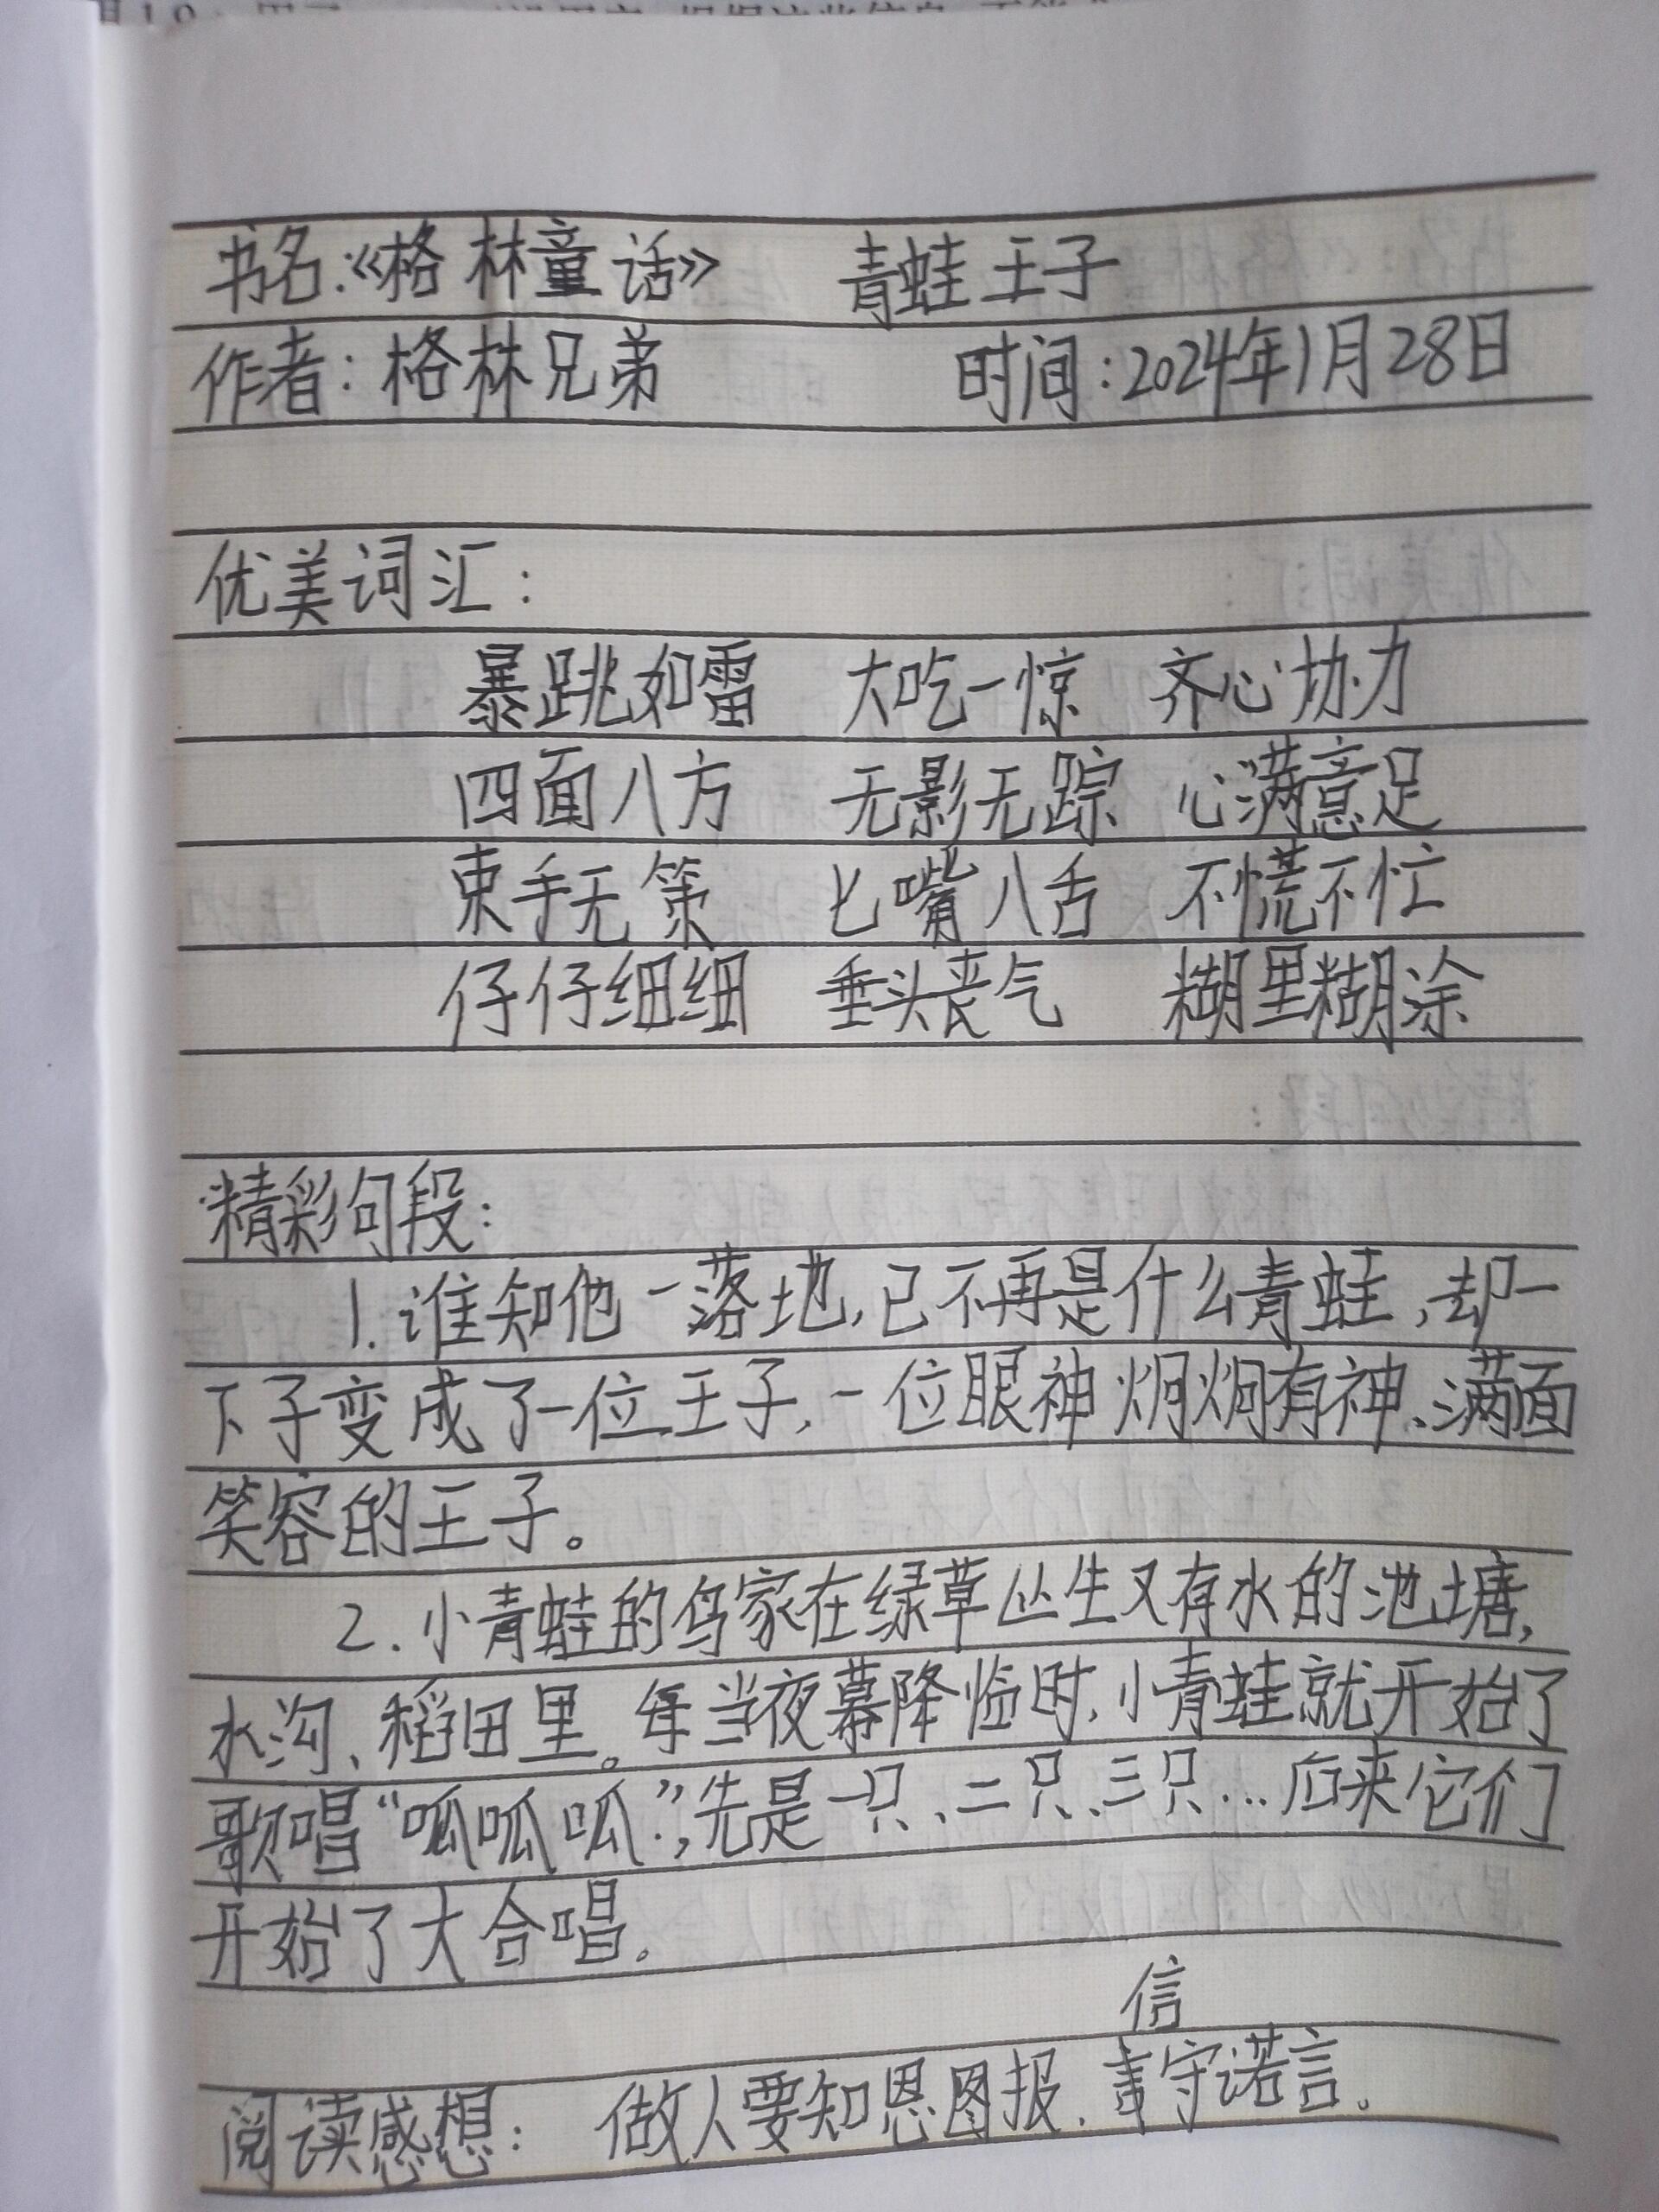 书名:《格林童话》 青蛙王子
作者:格林兄弟 时间:2024年1月28日
优美词汇:
暴跳如雷 大吃一惊 齐心协力
四面八方 无影无踪 心满意足
束手无策 七嘴八舌 不慌不忙
仔仔细细 垂头丧气 糊里糊涂
精彩句段:
1.谁知他一落地,已不再是什么青蛙,却一
下子变成了一位王子,一位眼神炯炯有神、满面
笑容的王子。
2.小青蛙的鸟家在绿草丛生又有水的池塘,
水沟、稻田里。每当夜幕降临时,小青蛙就开始了
歌唱“呱呱呱.”,先是一只、二只、三只…后来它们
开始了大合唱。
信
阅读感想: 做人要知恩图报,守诺言。